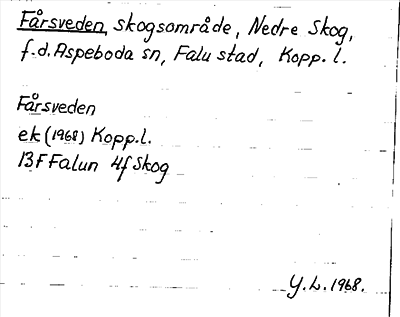 Fårsveden, skogsområde, Nedre Skog,
f.d. Aspeboda sn, Falu stad, Kopp. l.
Fårsveden
ek (1968) Kopp.l.
13F Falun 4f Skog
Y.L. 1968.